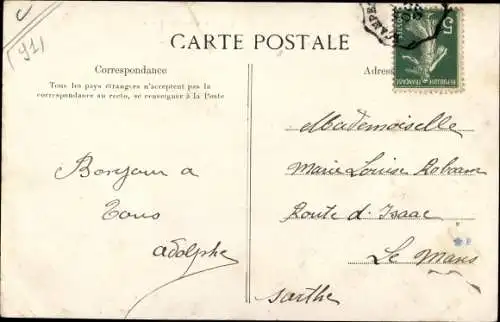 (91)
CARTE POSTALE
Correspondance
Tous les pays étrangers n'acceptent pas la
correspondance au recto, se renseigner à la Poste
Adres
Bonjour a
Tous
Adolphe
Mademoiselle
Marie Louise
Route d'Isaac
Le Mans
Sarthe
POSTES
REPUBLIQUE FRANÇAISE